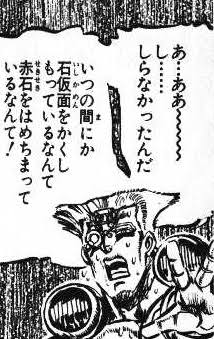 あ…ああ〜〜〜〜
し………
しらなかったんだ
いつの間にか
石仮面をかくし
もっているなんて
赤石をはめちまって
いるなんて!